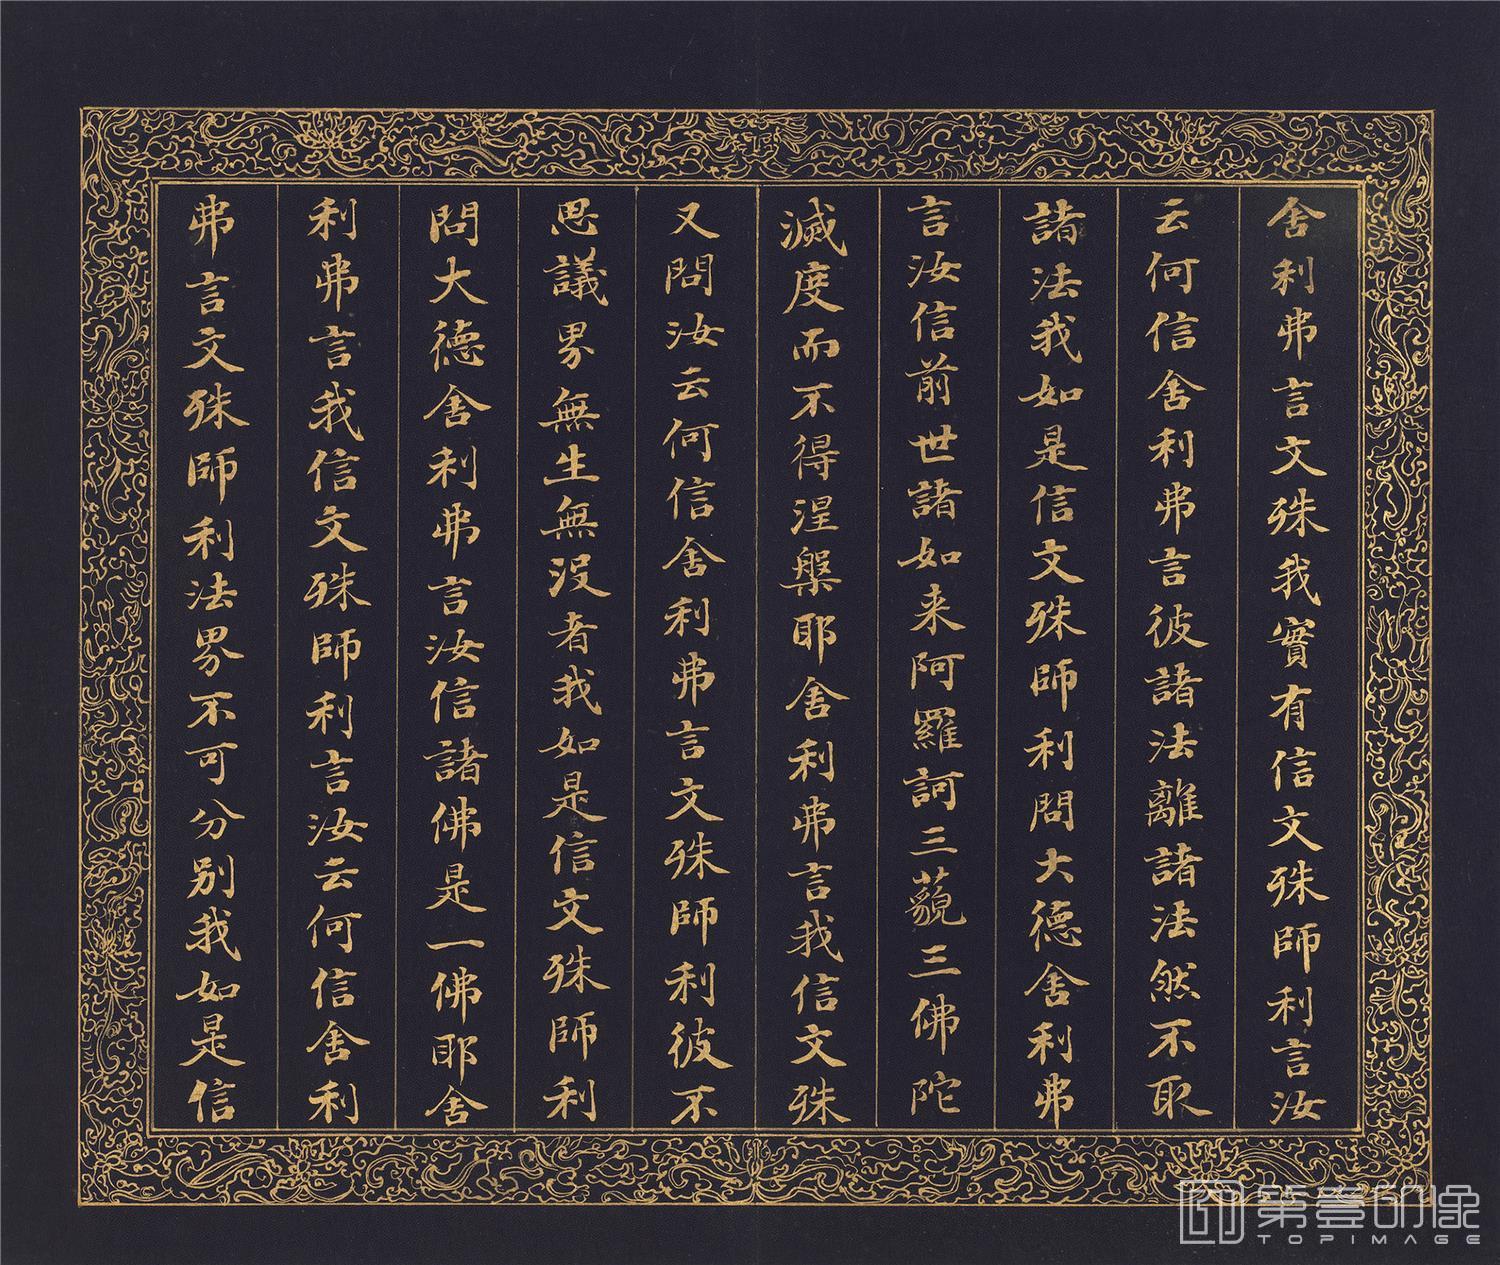 舍利弗言文殊我實有信文殊師利言汝
云何信舍利弗言彼諸法離諸法然不取
諸法我如是信文殊師利問大德舍利弗
言汝信前世諸如来阿羅訶三藐三佛陀
滅度而不得涅槃耶舍利弗言我信文殊
又問汝云何信舍利弗言文殊師利彼不
思議界無生無没者我如是信文殊師利
問大德舍利弗言汝信諸佛是一佛耶舍
利弗言我信文殊師利言汝云何信舍利
弗言文殊師利法界不可分别我如是信
第壹印像
TOPIMAGE